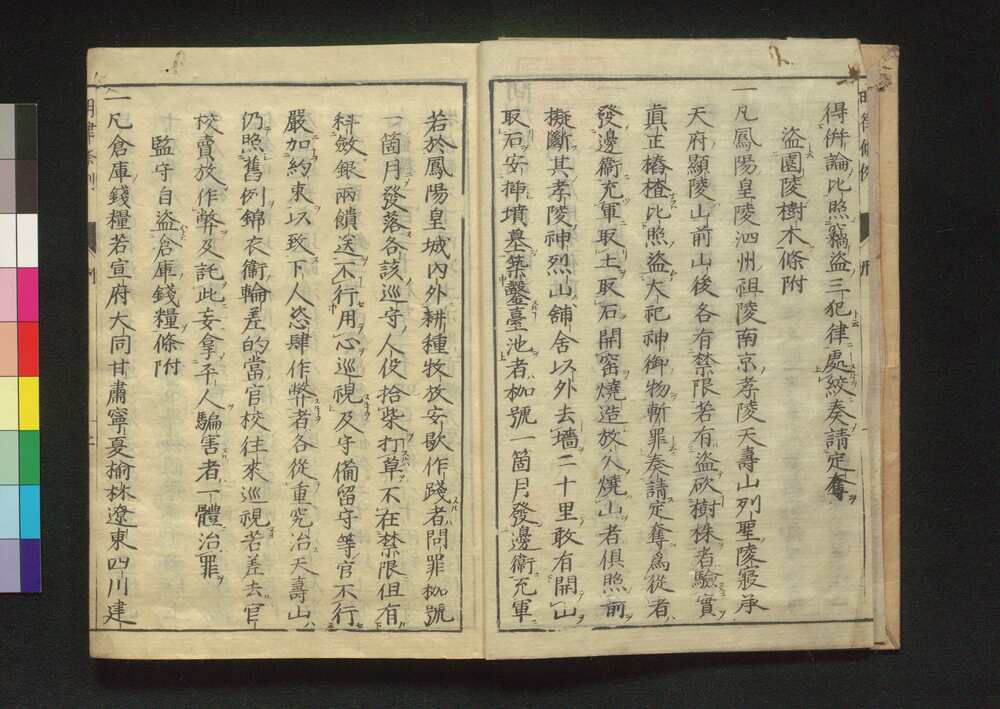 得併論比照竊盜三犯律處絞奏請定奪
盜園陵樹木條附
一凡鳳陽皇陵泗州祖陵南京孝陵天壽山列聖陵寢承
天府顯陵山前山後各有禁限若有盜砍樹株者驗實
真正樁楂比照盜大祀神御物斬罪奏請定奪為從者
發邊衛充軍取土取石開窑燒造放火燒山者俱照前
擬斷其孝陵神烈山舖舍以外去墻二十里敢有開山
取石安揷墳墓築鑿臺池者枷號一箇月發邊衛充軍
若於鳳陽皇城內外耕種牧放安歇作踐者問罪枷號
一箇月發落各該巡守人役拾柴打草不在禁限但有
科斂銀兩饋送不行用心巡視及守備留守等官不行
嚴加約束以致下人恣肆作弊者各從重究治天壽山
仍照舊例錦衣衛輪差的當官校往來巡視若差去官
校賣放作弊及託此妄拿平人騙害者一體治罪
監守自盜倉庫錢糧條附
一凡倉庫錢糧若宣府大同甘肅寧夏榆林遼東四川建